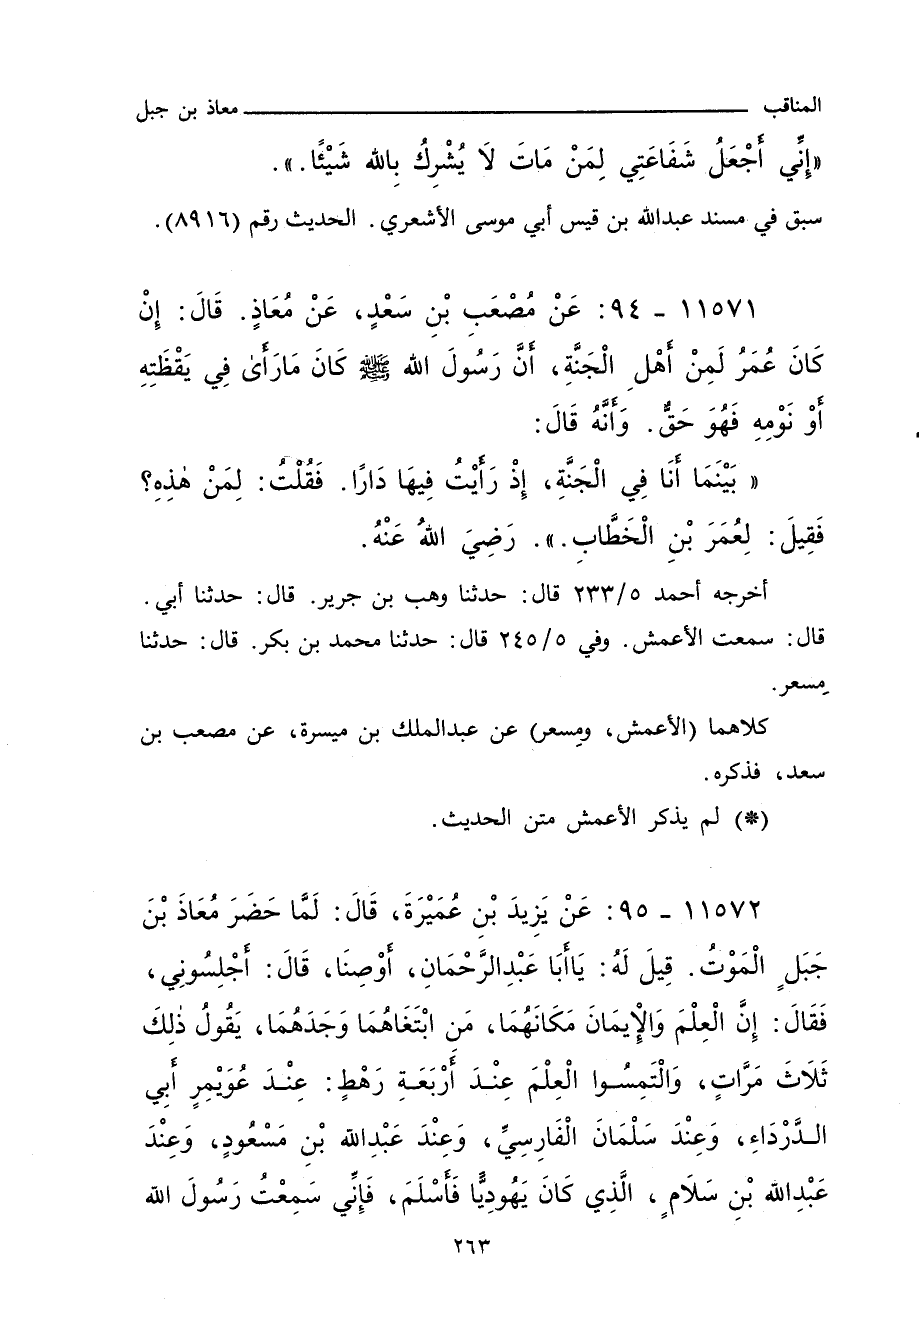 المناقب ــــــــــــــــــــ معاذ بن جبل
«إِنِّي أَجْعَلُ شَفَاعَتِي لِمَنْ مَاتَ لَا يُشْرِكُ بِالله شَيْئًا.».
سبق في مسند عبدالله بن قيس أبي موسى الأشعري. الحديث رقم (٨٩١٦).
١١٥٧١ - ٩٤: عَنْ مُصْعَبِ بْنِ سَعْدٍ، عَنْ مُعَاذٍ. قَالَ: إِنْ
كَانَ عُمَرُ لَمِنْ أَهْلِ الْجَنَّةِ، أَنَّ رَسُولَ الله ﷺ كَانَ مَارَأَىٰ فِي يَقْظَتِهِ
أَوْ نَوْمِهِ فَهُوَ حَقٌّ. وَأَنَّهُ قَالَ:
« بَيْنَمَا أَنَا فِي الْجَنَّةِ، إِذْ رَأَيْتُ فِيهَا دَارًا. فَقُلْتُ: لِمَنْ هٰذِهِ؟
فَقِيلَ: لِعُمَرَ بْنِ الْخَطَّابِ.». رَضِيَ اللهُ عَنْهُ.
أخرجه أحمد ٢٣٣/٥ قال: حدثنا وهب بن جرير. قال: حدثنا أبي.
قال: سمعت الأعمش. وفي ٢٤٥/٥ قال: حدثنا محمد بن بكر. قال: حدثنا
مِسعر.
كلاهما (الأعمش، ومِسعر) عن عبدالملك بن ميسرة، عن مصعب بن
سعد، فذكره.
(*) لم يذكر الأعمش متن الحديث.
١١٥٧٢ - ٩٥: عَنْ يَزِيدَ بْنِ عُمَيْرَةَ، قَالَ: لَمَّا حَضَرَ مُعَاذَ بْنَ
جَبَلٍ الْمَوْتُ. قِيلَ لَهُ: يَاأَبَا عَبْدِالرَّحْمَانِ، أَوْصِنَا، قَالَ: أَجْلِسُونِي،
فَقَالَ: إِنَّ الْعِلْمَ وَالْإِيمَانَ مَكَانَهُمَا، مَنِ ابْتَغَاهُمَا وَجَدَهُمَا، يَقُولُ ذٰلِكَ
ثَلَاثَ مَرَّاتٍ، وَالْتَمِسُوا الْعِلْمَ عِنْدَ أَرْبَعَةِ رَهْطٍ: عِنْدَ عُوَيْمِرٍ أَبِي
الدَّرْدَاءِ، وَعِنْدَ سَلْمَانَ الْفَارِسِيِّ، وَعِنْدَ عَبْدِالله بْنِ مَسْعُودٍ، وَعِنْدَ
عَبْدِالله بْنِ سَلَامٍ، الَّذِي كَانَ يَهُودِيًّا فَأَسْلَمَ، فَإِنِّي سَمِعْتُ رَسُولَ الله
٢٦٣